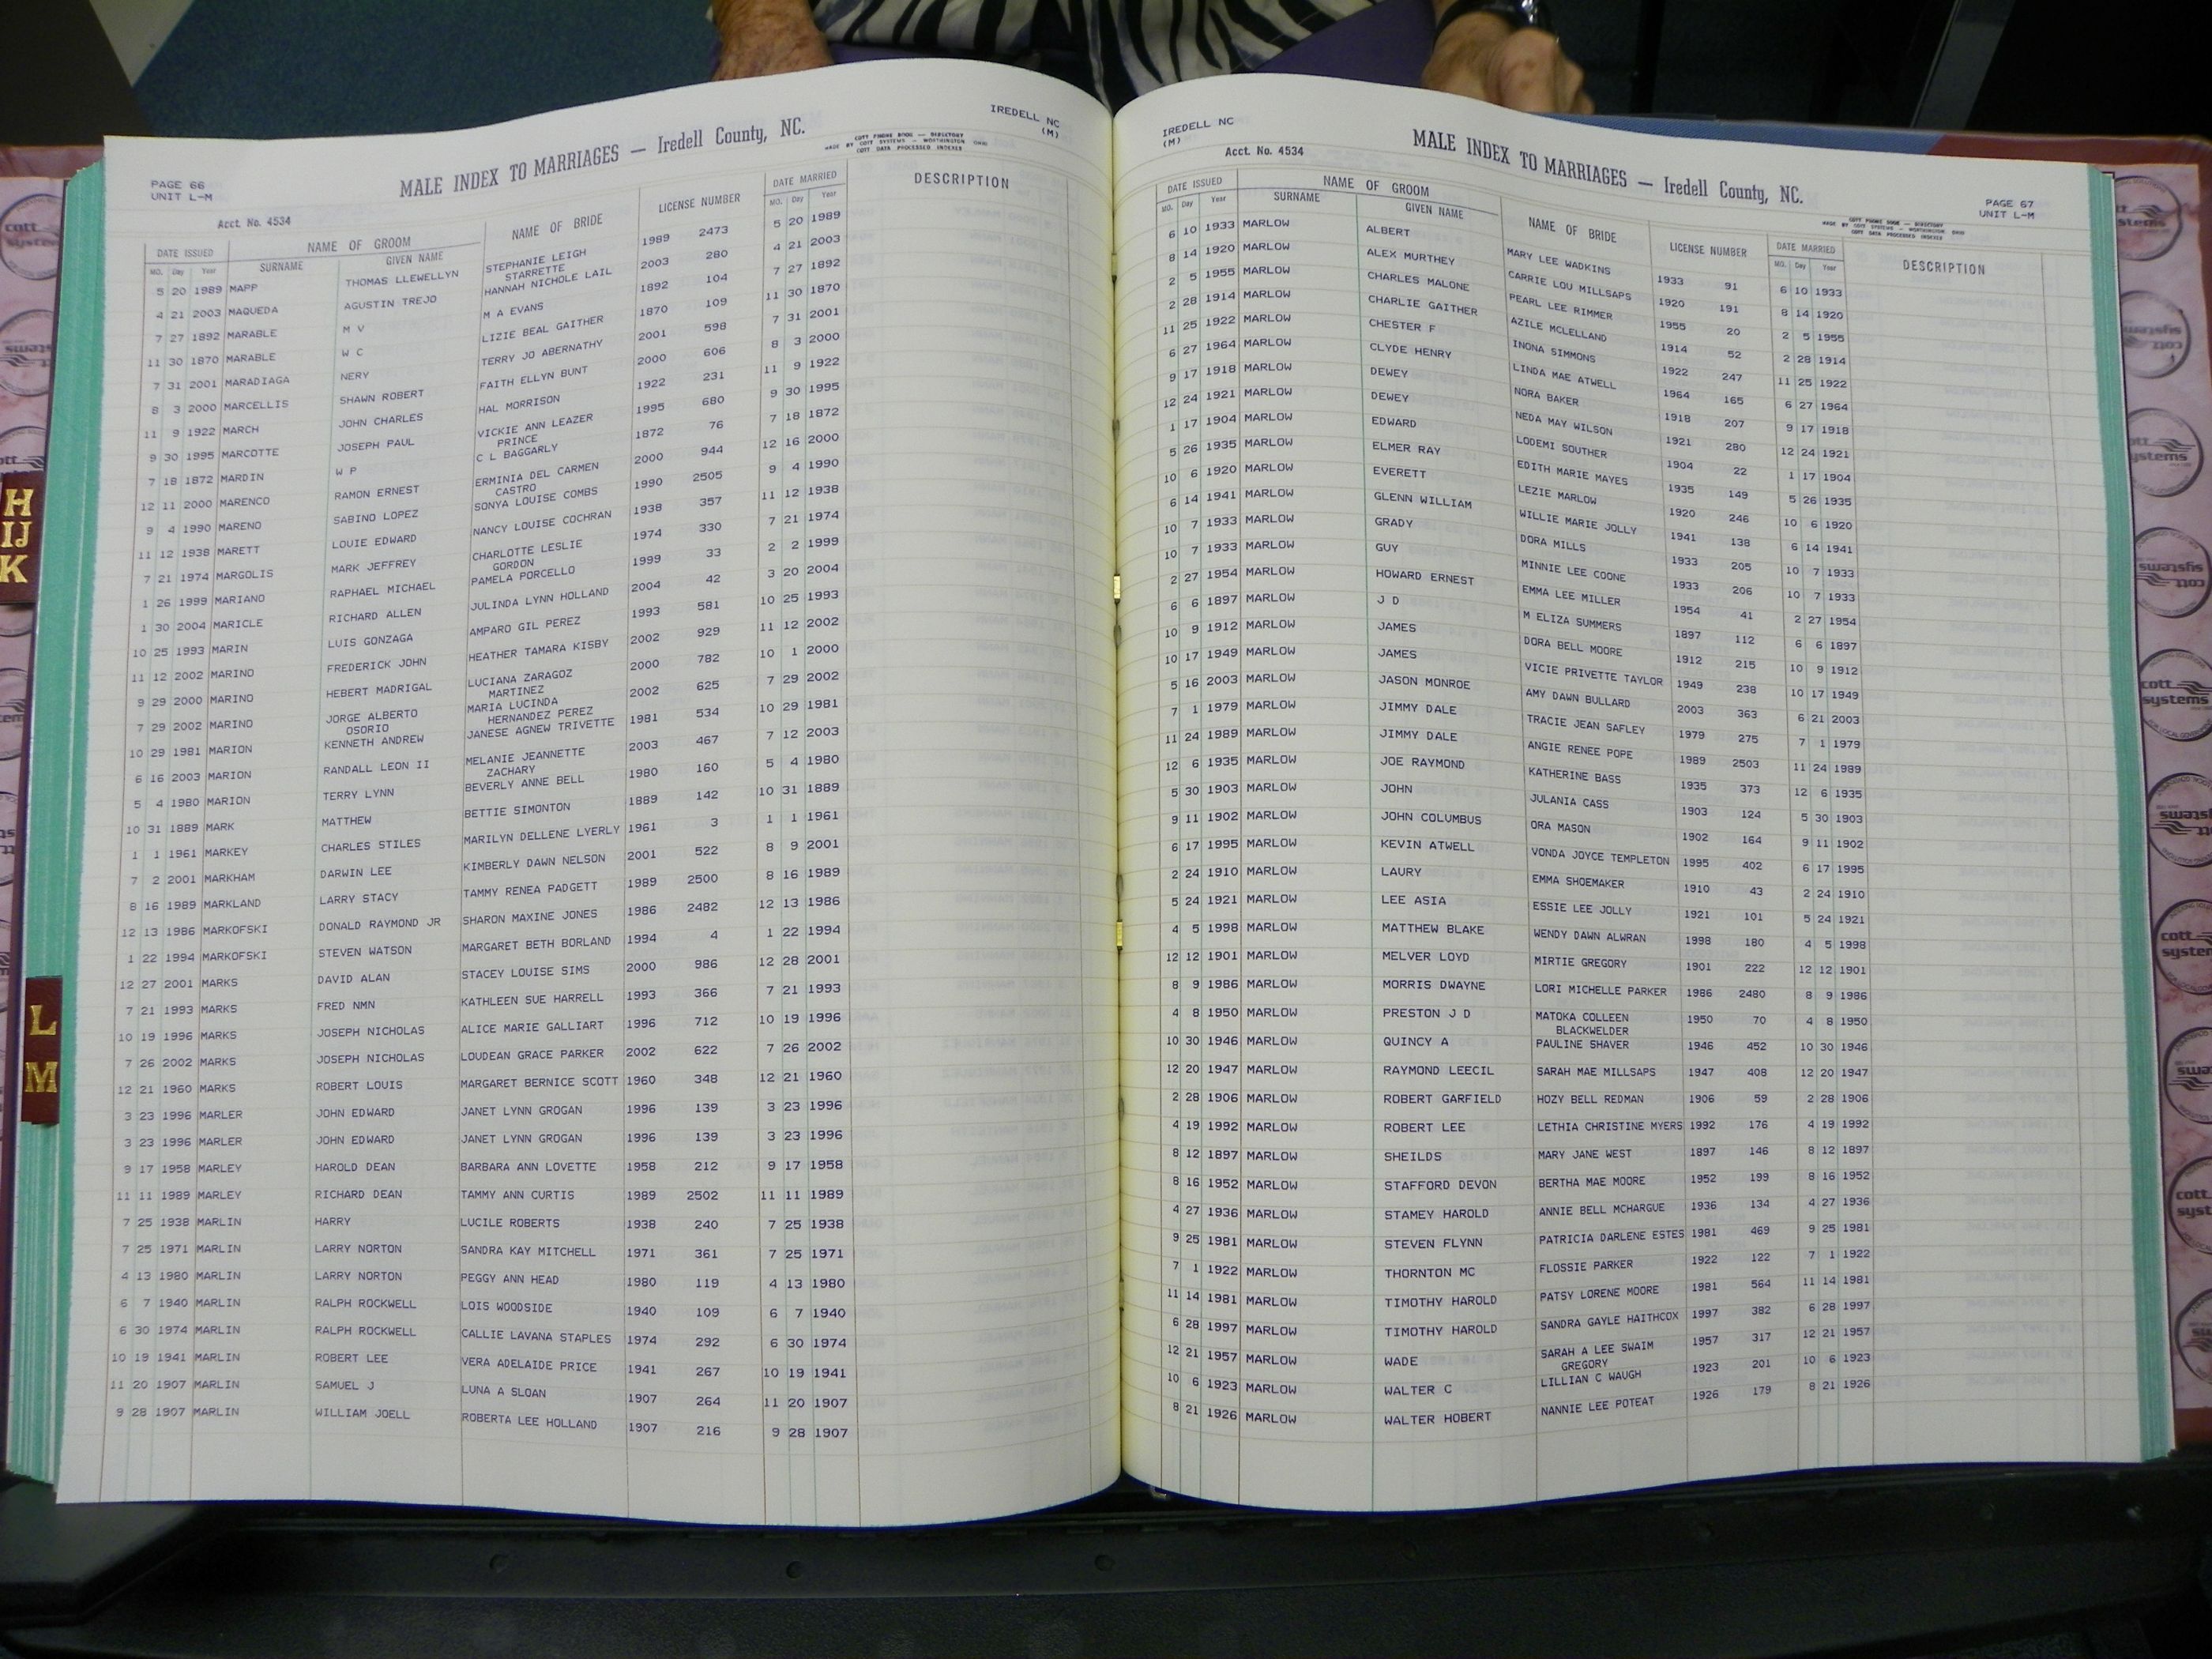 IREDELL NC
(M)
MALE INDEX TO MARRIAGES — Iredell County, NC.
COTT PHONE BOOK — DIRECTORY
MADE BY COTT SYSTEMS — WORTHINGTON OHIO
COTT DATA PROCESSED INDEXER
PAGE 66
UNIT L-M
Acct. No. 4534
DATE ISSUED NAME OF GROOM NAME OF BRIDE LICENSE NUMBER DATE MARRIED DESCRIPTION
MO. Day Year SURNAME GIVEN NAME MO. Day Year
5 20 1989 MAPP THOMAS LLEWELLYN STEPHANIE LEIGH 1989 2473 5 20 1989
STARRETTE
4 21 2003 MAQUEDA AGUSTIN TREJO HANNAH NICHOLE LAIL 2003 280 4 21 2003
7 27 1892 MARABLE M V M A EVANS 1892 104 7 27 1892
11 30 1870 MARABLE W C LIZIE BEAL GAITHER 1870 109 11 30 1870
7 31 2001 MARADIAGA NERY TERRY JO ABERNATHY 2001 598 7 31 2001
8 3 2000 MARCELLIS SHAWN ROBERT FAITH ELLYN BUNT 2000 606 8 3 2000
11 9 1922 MARCH JOHN CHARLES HAL MORRISON 1922 231 11 9 1922
9 30 1995 MARCOTTE JOSEPH PAUL VICKIE ANN LEAZER 1995 680 9 30 1995
PRINCE
7 18 1872 MARDIN W P C L BAGGARLY 1872 76 7 18 1872
12 11 2000 MARENCO RAMON ERNEST ERMINIA DEL CARMEN 2000 944 12 16 2000
CASTRO
9 4 1990 MARENO SABINO LOPEZ SONYA LOUISE COMBS 1990 2505 9 4 1990
11 12 1938 MARETT LOUIE EDWARD NANCY LOUISE COCHRAN 1938 357 11 12 1938
7 21 1974 MARGOLIS MARK JEFFREY CHARLOTTE LESLIE 1974 330 7 21 1974
GORDON
1 26 1999 MARIANO RAPHAEL MICHAEL PAMELA PORCELLO 1999 33 2 2 1999
1 30 2004 MARICLE RICHARD ALLEN JULINDA LYNN HOLLAND 2004 42 3 20 2004
10 25 1993 MARIN LUIS GONZAGA AMPARO GIL PEREZ 1993 581 10 25 1993
11 12 2002 MARINO FREDERICK JOHN HEATHER TAMARA KISBY 2002 929 11 12 2002
9 29 2000 MARINO HEBERT MADRIGAL LUCIANA ZARAGOZ 2000 782 10 1 2000
MARTINEZ
7 29 2002 MARINO JORGE ALBERTO MARIA LUCINDA 2002 625 7 29 2002
OSORIO HERNANDEZ PEREZ
10 29 1981 MARION KENNETH ANDREW JANESE AGNEW TRIVETTE 1981 534 10 29 1981
6 16 2003 MARION RANDALL LEON II MELANIE JEANNETTE 2003 467 7 12 2003
ZACHARY
5 4 1980 MARION TERRY LYNN BEVERLY ANNE BELL 1980 160 5 4 1980
10 31 1889 MARK MATTHEW BETTIE SIMONTON 1889 142 10 31 1889
1 1 1961 MARKEY CHARLES STILES MARILYN DELLENE LYERLY 1961 3 1 1 1961
7 2 2001 MARKHAM DARWIN LEE KIMBERLY DAWN NELSON 2001 522 8 9 2001
8 16 1989 MARKLAND LARRY STACY TAMMY RENEA PADGETT 1989 2500 8 16 1989
12 13 1986 MARKOFSKI DONALD RAYMOND JR SHARON MAXINE JONES 1986 2482 12 13 1986
1 22 1994 MARKOFSKI STEVEN WATSON MARGARET BETH BORLAND 1994 4 1 22 1994
12 27 2001 MARKS DAVID ALAN STACEY LOUISE SIMS 2000 986 12 28 2001
7 21 1993 MARKS FRED NMN KATHLEEN SUE HARRELL 1993 366 7 21 1993
10 19 1996 MARKS JOSEPH NICHOLAS ALICE MARIE GALLIART 1996 712 10 19 1996
7 26 2002 MARKS JOSEPH NICHOLAS LOUDEAN GRACE PARKER 2002 622 7 26 2002
12 21 1960 MARKS ROBERT LOUIS MARGARET BERNICE SCOTT 1960 348 12 21 1960
3 23 1996 MARLER JOHN EDWARD JANET LYNN GROGAN 1996 139 3 23 1996
3 23 1996 MARLER JOHN EDWARD JANET LYNN GROGAN 1996 139 3 23 1996
9 17 1958 MARLEY HAROLD DEAN BARBARA ANN LOVETTE 1958 212 9 17 1958
11 11 1989 MARLEY RICHARD DEAN TAMMY ANN CURTIS 1989 2502 11 11 1989
7 25 1938 MARLIN HARRY LUCILE ROBERTS 1938 240 7 25 1938
7 25 1971 MARLIN LARRY NORTON SANDRA KAY MITCHELL 1971 361 7 25 1971
4 13 1980 MARLIN LARRY NORTON PEGGY ANN HEAD 1980 119 4 13 1980
6 7 1940 MARLIN RALPH ROCKWELL LOIS WOODSIDE 1940 109 6 7 1940
6 30 1974 MARLIN RALPH ROCKWELL CALLIE LAVANA STAPLES 1974 292 6 30 1974
10 19 1941 MARLIN ROBERT LEE VERA ADELAIDE PRICE 1941 267 10 19 1941
11 20 1907 MARLIN SAMUEL J LUNA A SLOAN 1907 264 11 20 1907
9 28 1907 MARLIN WILLIAM JOELL ROBERTA LEE HOLLAND 1907 216 9 28 1907
IREDELL NC
(M)
Acct. No. 4534
MALE INDEX TO MARRIAGES — Iredell County, NC.
PAGE 67
UNIT L-M
COTT PHONE BOOK — DIRECTORY
MADE BY COTT SYSTEMS — WORTHINGTON OHIO
COTT DATA PROCESSED INDEXER
DATE ISSUED NAME OF GROOM NAME OF BRIDE LICENSE NUMBER DATE MARRIED DESCRIPTION
MO. Day Year SURNAME GIVEN NAME MO. Day Year
6 10 1933 MARLOW ALBERT MARY LEE WADKINS 1933 91 6 10 1933
8 14 1920 MARLOW ALEX MURTHEY CARRIE LOU MILLSAPS 1920 191 8 14 1920
2 5 1955 MARLOW CHARLES MALONE PEARL LEE RIMMER 1955 20 2 5 1955
2 28 1914 MARLOW CHARLIE GAITHER AZILE MCLELLAND 1914 52 2 28 1914
11 25 1922 MARLOW CHESTER F INONA SIMMONS 1922 247 11 25 1922
6 27 1964 MARLOW CLYDE HENRY LINDA MAE ATWELL 1964 165 6 27 1964
9 17 1918 MARLOW DEWEY NORA BAKER 1918 207 9 17 1918
12 24 1921 MARLOW DEWEY NEDA MAY WILSON 1921 280 12 24 1921
1 17 1904 MARLOW EDWARD LODEMI SOUTHER 1904 22 1 17 1904
5 26 1935 MARLOW ELMER RAY EDITH MARIE MAYES 1935 149 5 26 1935
10 6 1920 MARLOW EVERETT LEZIE MARLOW 1920 246 10 6 1920
6 14 1941 MARLOW GLENN WILLIAM WILLIE MARIE JOLLY 1941 138 6 14 1941
10 7 1933 MARLOW GRADY DORA MILLS 1933 205 10 7 1933
10 7 1933 MARLOW GUY MINNIE LEE COONE 1933 206 10 7 1933
2 27 1954 MARLOW HOWARD ERNEST EMMA LEE MILLER 1954 41 2 27 1954
6 6 1897 MARLOW J D M ELIZA SUMMERS 1897 112 6 6 1897
10 9 1912 MARLOW JAMES DORA BELL MOORE 1912 215 10 9 1912
10 17 1949 MARLOW JAMES VICIE PRIVETTE TAYLOR 1949 238 10 17 1949
5 16 2003 MARLOW JASON MONROE AMY DAWN BULLARD 2003 363 6 21 2003
7 1 1979 MARLOW JIMMY DALE TRACIE JEAN SAFLEY 1979 275 7 1 1979
11 24 1989 MARLOW JIMMY DALE ANGIE RENEE POPE 1989 2503 11 24 1989
12 6 1935 MARLOW JOE RAYMOND KATHERINE BASS 1935 373 12 6 1935
5 30 1903 MARLOW JOHN JULANIA CASS 1903 124 5 30 1903
9 11 1902 MARLOW JOHN COLUMBUS ORA MASON 1902 164 9 11 1902
6 17 1995 MARLOW KEVIN ATWELL VONDA JOYCE TEMPLETON 1995 402 6 17 1995
2 24 1910 MARLOW LAURY EMMA SHOEMAKER 1910 43 2 24 1910
5 24 1921 MARLOW LEE ASIA ESSIE LEE JOLLY 1921 101 5 24 1921
4 5 1998 MARLOW MATTHEW BLAKE WENDY DAWN ALWRAN 1998 180 4 5 1998
12 12 1901 MARLOW MELVER LOYD MIRTIE GREGORY 1901 222 12 12 1901
8 9 1986 MARLOW MORRIS DWAYNE LORI MICHELLE PARKER 1986 2480 8 9 1986
4 8 1950 MARLOW PRESTON J D MATOKA COLLEEN 1950 70 4 8 1950
BLACKWELDER
10 30 1946 MARLOW QUINCY A PAULINE SHAVER 1946 452 10 30 1946
12 20 1947 MARLOW RAYMOND LEECIL SARAH MAE MILLSAPS 1947 408 12 20 1947
2 28 1906 MARLOW ROBERT GARFIELD HOZY BELL REDMAN 1906 59 2 28 1906
4 19 1992 MARLOW ROBERT LEE LETHIA CHRISTINE MYERS 1992 176 4 19 1992
8 12 1897 MARLOW SHEILDS MARY JANE WEST 1897 146 8 12 1897
8 16 1952 MARLOW STAFFORD DEVON BERTHA MAE MOORE 1952 199 8 16 1952
4 27 1936 MARLOW STAMEY HAROLD ANNIE BELL MCHARGUE 1936 134 4 27 1936
9 25 1981 MARLOW STEVEN FLYNN PATRICIA DARLENE ESTES 1981 469 9 25 1981
7 1 1922 MARLOW THORNTON MC FLOSSIE PARKER 1922 122 7 1 1922
11 14 1981 MARLOW TIMOTHY HAROLD PATSY LORENE MOORE 1981 564 11 14 1981
6 28 1997 MARLOW TIMOTHY HAROLD SANDRA GAYLE HAITHCOX 1997 382 6 28 1997
12 21 1957 MARLOW WADE SARAH A LEE SWAIM 1957 317 12 21 1957
GREGORY
10 6 1923 MARLOW WALTER C LILLIAN C WAUGH 1923 201 10 6 1923
8 21 1926 MARLOW WALTER HOBERT NANNIE LEE POTEAT 1926 179 8 21 1926
H
IJ
K
L
M
cott systems